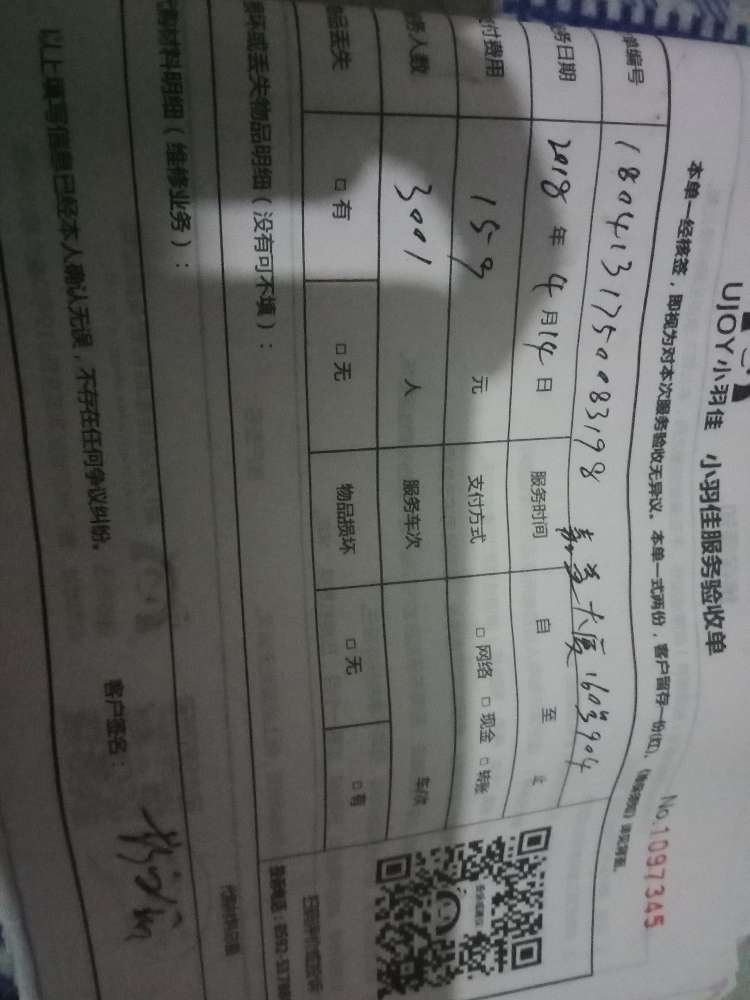 UJOY小羽佳 小羽佳服务验收单
No.1097345
本单一经核签，即视为对本次服务验收无异议。本单一式两份，客户留存一份(红)、
单编号 1804131750083198 大厦160号904
务日期 2018 年 4 月 14 日 服务时间 自 至
付费用 159 元 支付方式 □ 网络 □ 现金 □ 转账
务人数 3001 人 服务车次 车次
品丢失 □ 有 □ 无 物品损坏 □ 无 □ 有
损坏或丢失物品明细（没有可不填）：
材料明细（维修业务）：
以上填写信息已经本人确认无误，不存在任何争议纠纷。
客户签名：